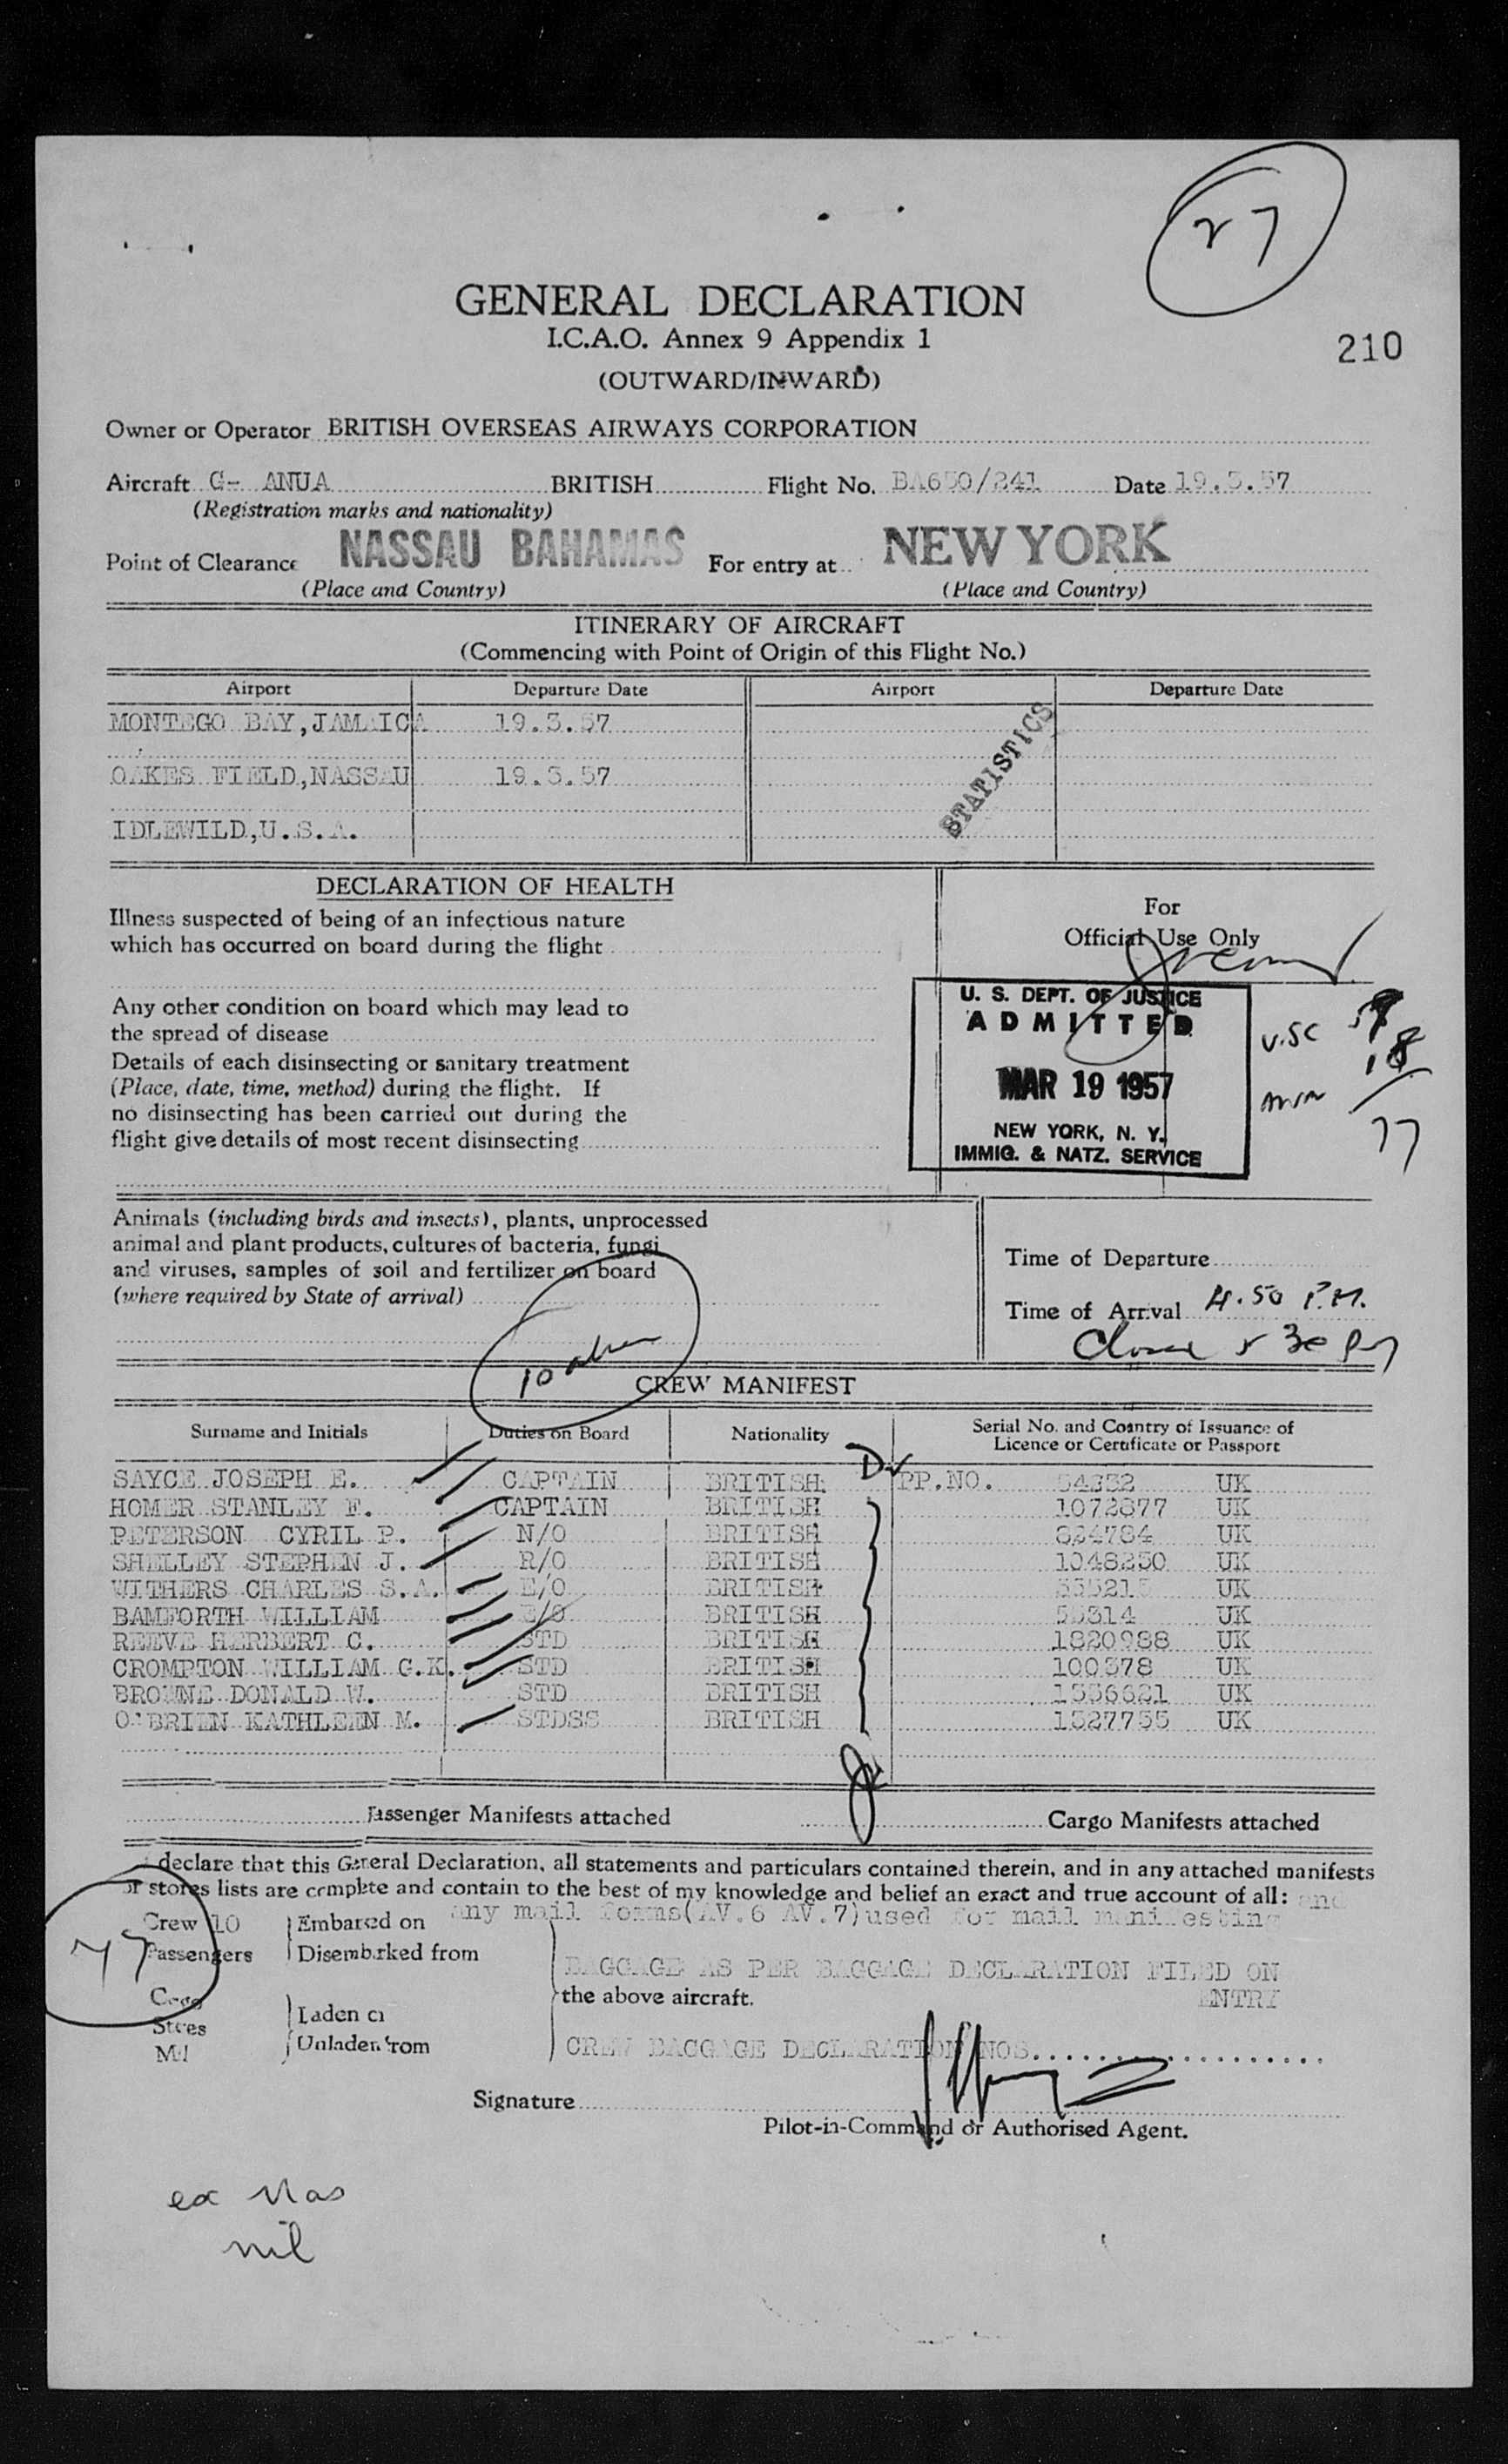 27
GENERAL DECLARATION
I.C.A.O. Annex 9 Appendix 1
210
(OUTWARD/INWARD)
Owner or Operator BRITISH OVERSEAS AIRWAYS CORPORATION
Aircraft G- ANUA BRITISH Flight No. BA650/241 Date 19.3.57
(Registration marks and nationality)
Point of Clearance NASSAU BAHAMAS For entry at NEW YORK
(Place and Country) (Place and Country)
ITINERARY OF AIRCRAFT
(Commencing with Point of Origin of this Flight No.)
Airport Departure Date Airport Departure Date
MONTEGO BAY,JAMAICA 19.3.57
STATISTICS
OAKES FIELD,NASSAU 19.3.57
IDLEWILD,U.S.A.
DECLARATION OF HEALTH
Illness suspected of being of an infectious nature
which has occurred on board during the flight
For
Official Use Only
Any other condition on board which may lead to
the spread of disease
Details of each disinsecting or sanitary treatment
(Place, date, time, method) during the flight. If
no disinsecting has been carried out during the
flight give details of most recent disinsecting
U. S. DEPT. OF JUSTICE
ADMITTED
MAR 19 1957
NEW YORK, N. Y.
IMMIG. & NATZ. SERVICE
U.SC 59
18
77
Animals (including birds and insects), plants, unprocessed
animal and plant products, cultures of bacteria, fungi
and viruses, samples of soil and fertilizer on board
(where required by State of arrival)
Time of Departure
Time of Arrival 4.50 P.M.
10
CREW MANIFEST
Surname and Initials Duties on Board Nationality Serial No. and Country of Issuance of
Licence or Certificate or Passport
SAYCE JOSEPH E. CAPTAIN BRITISH PP.NO. UK
HOMER STANLEY F. CAPTAIN BRITISH 1072877 UK
PETERSON CYRIL P. N/O BRITISH 824784 UK
SHELLEY STEPHEN J. R/O BRITISH 1048250 UK
WITHERS CHARLES S.A. E/O BRITISH UK
BAMFORTH WILLIAM E/O BRITISH UK
REEVE HERBERT C. STD BRITISH 1820988 UK
CROMPTON WILLIAM G.K. STD BRITISH 100378 UK
BROWNE DONALD W. STD BRITISH UK
O'BRIEN KATHLEEN M. STDSS BRITISH 1527755 UK
Passenger Manifests attached Cargo Manifests attached
declare that this General Declaration, all statements and particulars contained therein, and in any attached manifests
or stores lists are complete and contain to the best of my knowledge and belief an exact and true account of all: and
any mail forms(AV.6 AV.7)used for mail manifesting
Crew 10 Embarked on
Passengers Disembarked from
77
BAGGAGE AS PER BAGGAGE DECLARATION FILED ON
the above aircraft. ENTRY
Cargo
Stores
Mail
Laden on
Unladen from
CREW BAGGAGE DECLARATION NOS....................
Signature
Pilot-in-Command or Authorised Agent.
ex Nas
nil